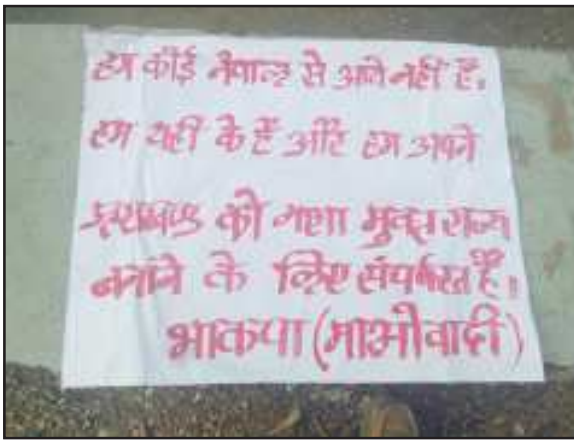 हम कोई नेपाल से आये नहीं है,
हम यहीं के हैं और हम अपने
झारखण्ड को नशा मुक्त राज्य
बनाने के लिए संघर्षरत है।
भाकपा (माओवादी)